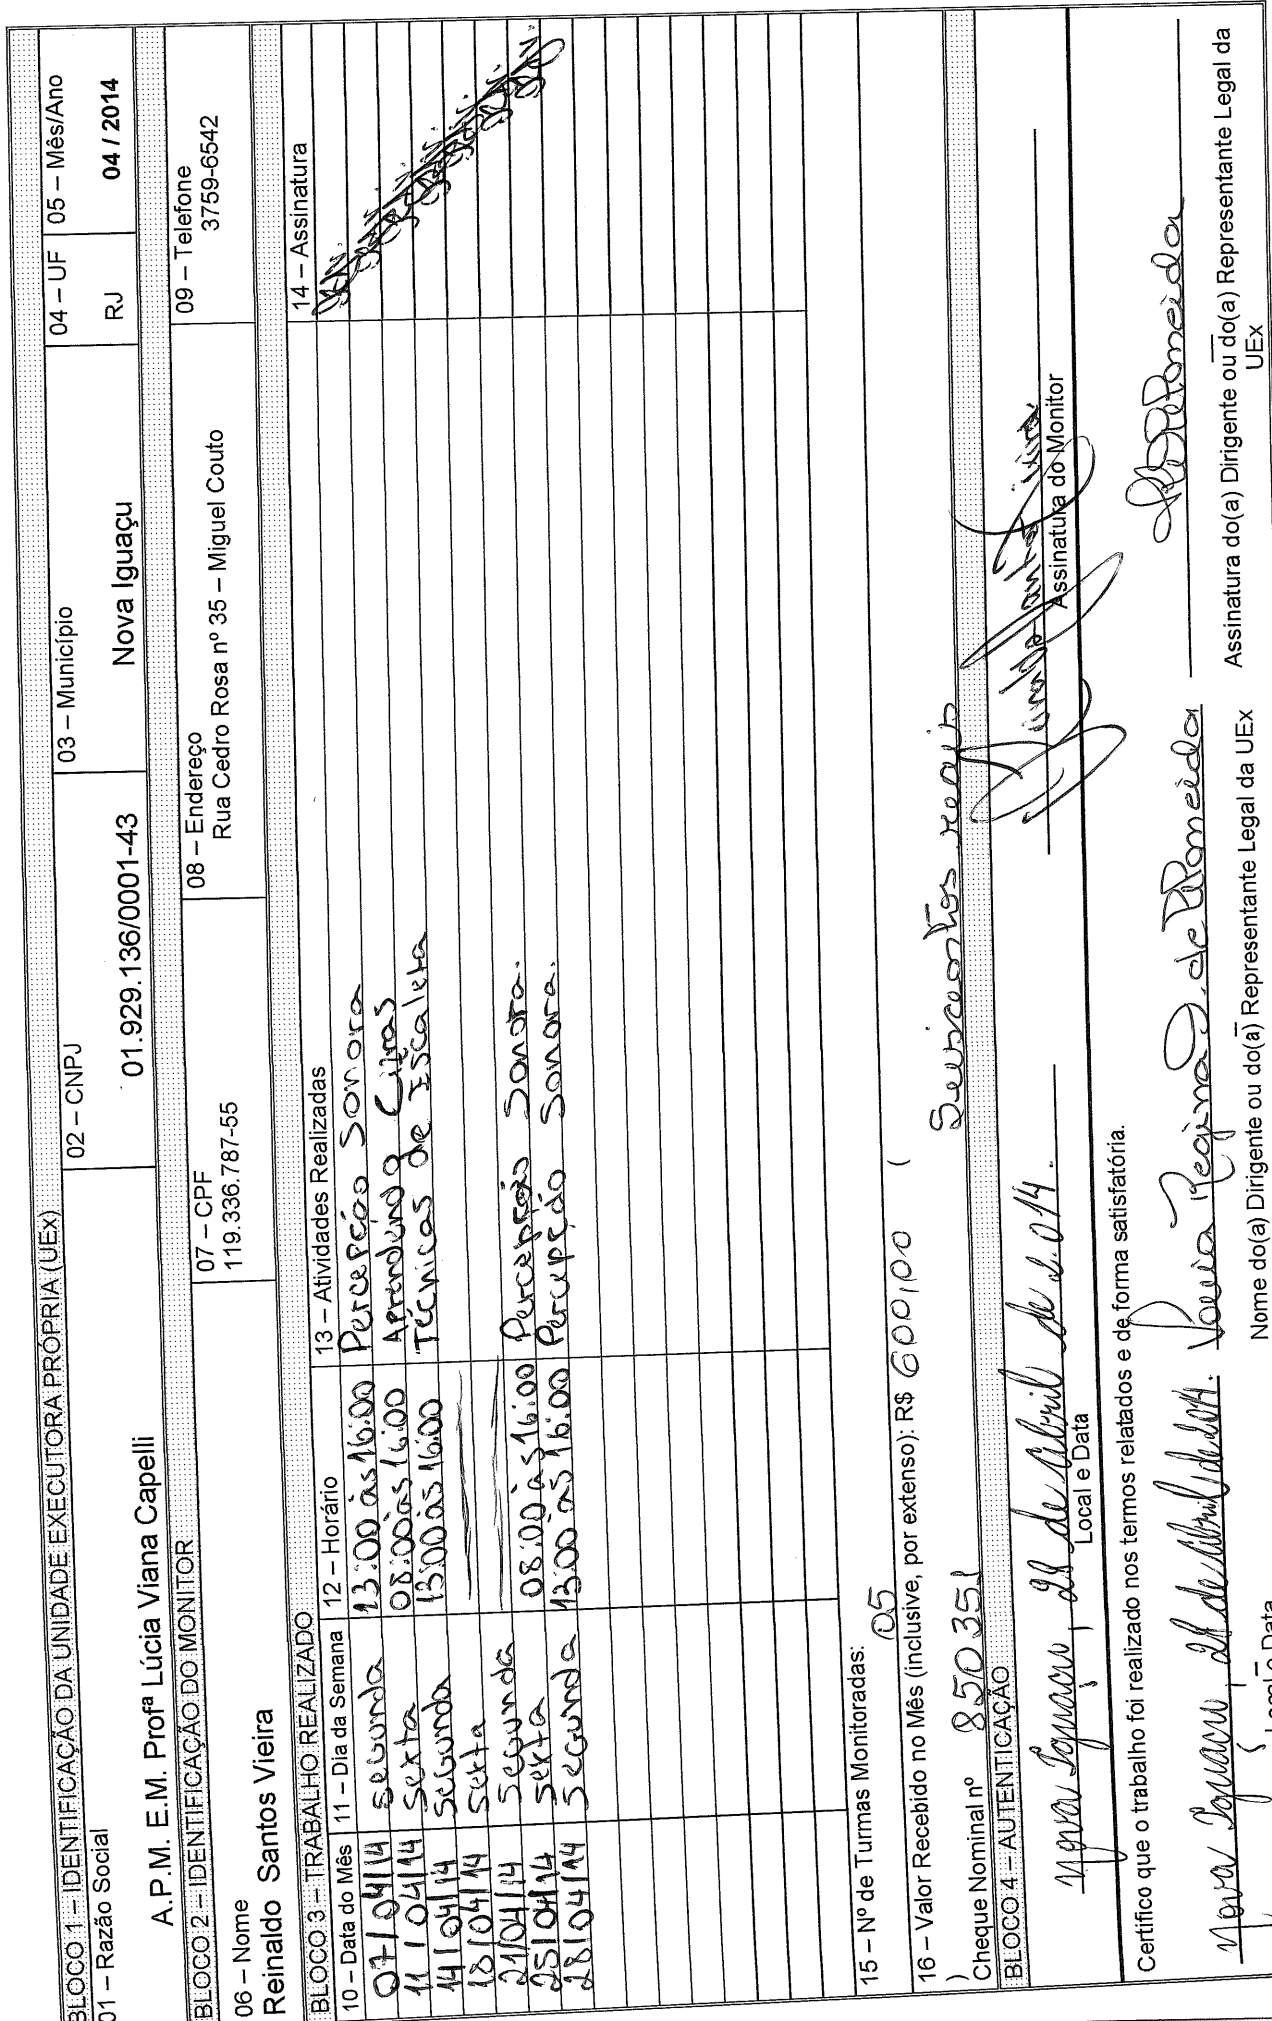 BLOCO 1 – IDENTIFICAÇÃO DA UNIDADE EXECUTORA PRÓPRIA (UEx)
01 – Razão Social
A.P.M. E.M. Profª Lúcia Viana Capelli
02 – CNPJ
01.929.136/0001-43
03 – Município
Nova Iguaçu
04 – UF
RJ
05 – Mês/Ano
04 / 2014
BLOCO 2 – IDENTIFICAÇÃO DO MONITOR
06 – Nome
Reinaldo Santos Vieira
07 – CPF
119.336.787-55
08 – Endereço
Rua Cedro Rosa nº 35 – Miguel Couto
09 – Telefone
3759-6542
BLOCO 3 – TRABALHO REALIZADO
10 – Data do Mês 11 – Dia da Semana 12 – Horário 13 – Atividades Realizadas 14 – Assinatura
07/04/14 segunda 13:00 às 16:00 Percepção Sonora
11/04/14 sexta 08:00 às 16:00 Aprendendo Cifras
14/04/14 segunda 13:00 às 16:00 Técnicas de Escaleta
18/04/14 sexta
21/04/14 segunda
25/04/14 sexta 08:00 às 16:00 Percepção Sonora.
28/04/14 segunda 13:00 às 16:00 Percepção Sonora.
15 – Nº de Turmas Monitoradas: 05
16 – Valor Recebido no Mês (inclusive, por extenso): R$ 600,00 ( Seiscentos reais
)
Cheque Nominal nº 850351
BLOCO 4 – AUTENTICAÇÃO
Nova Iguaçu, 28 de Abril de 2.014.
Local e Data
Reinaldo Santos Vieira
Assinatura do Monitor
Certifico que o trabalho foi realizado nos termos relatados e de forma satisfatória.
Nova Iguaçu, 28 de Abril de 2014.
Local e Data
Nome do(a) Dirigente ou do(a) Representante Legal da UEx
Assinatura do(a) Dirigente ou do(a) Representante Legal da
UEx